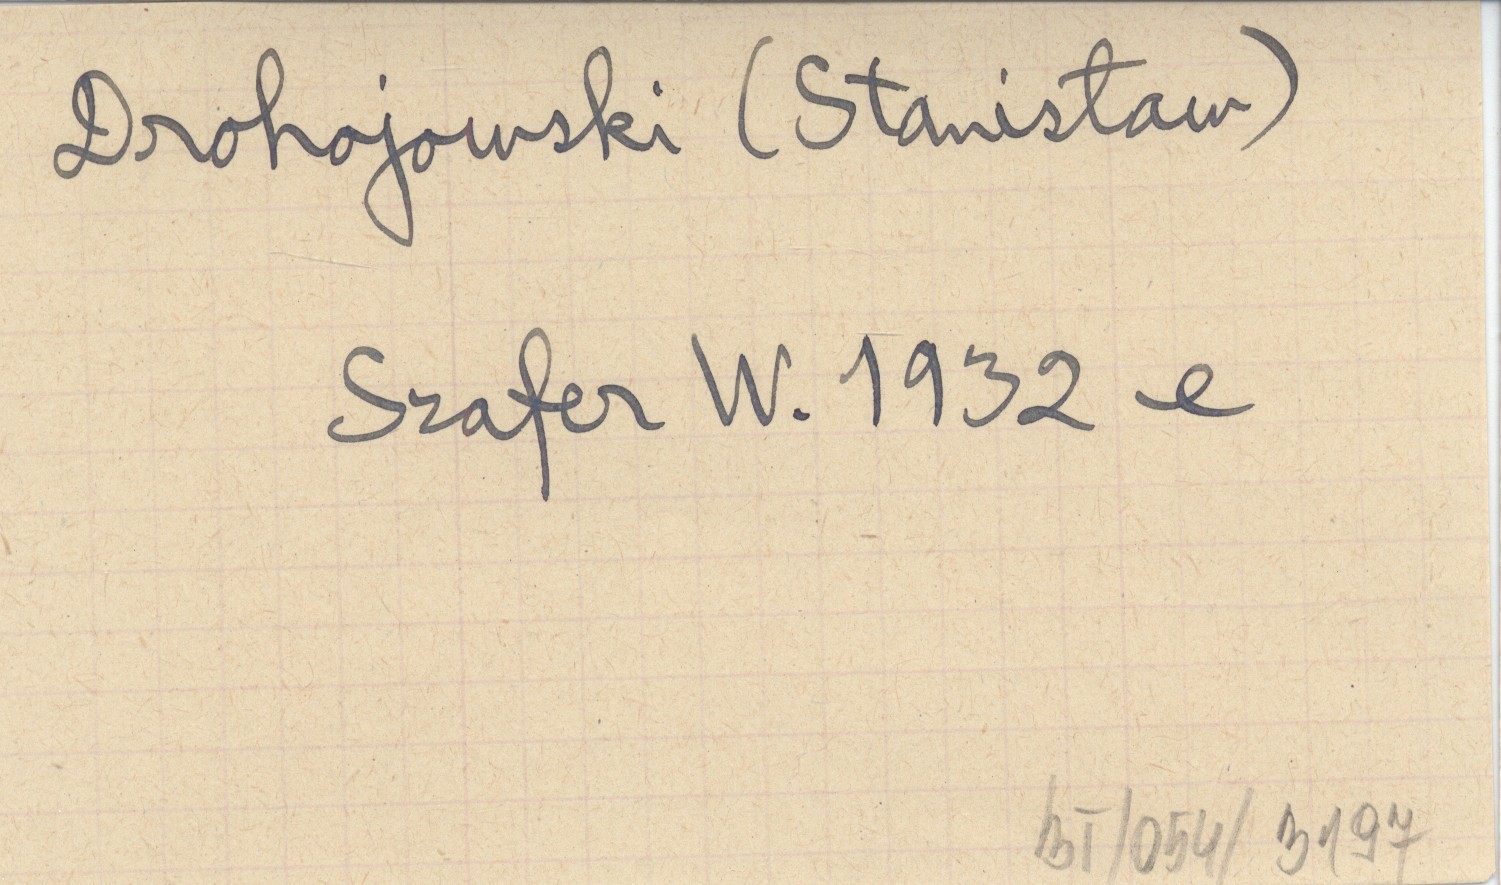 Drohojowski (Stanisław)
Szafer W. 1932 e
BI/054/3197